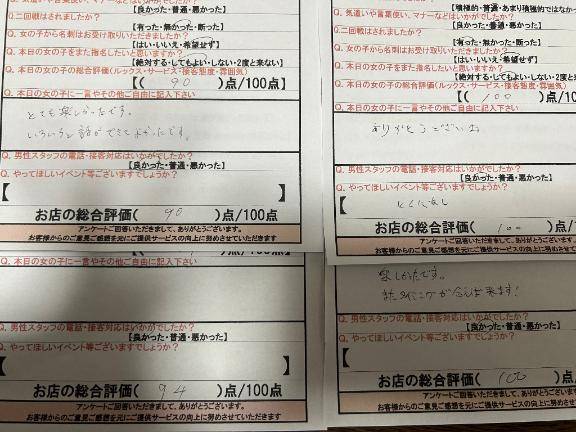 【良かった・普通・悪かった】
Q.二回戦はされましたか？
【有った・無かった・断った】
Q.女の子から名刺はお受け取りいただきましたか？
【はい・いいえ・希望せず】
Q.本日の女の子をまた指名したいと思いますか？
【絶対する・してもよい・しない・2度と来ない】
Q.本日の女の子の総合評価(ルックス・サービス・接客態度・雰囲気)
【( 90 )点/100点
Q.本日の女の子に一言やその他ご自由に記入下さい
とても楽しかったです。
いろいろと話ができてよかったです。
Q.男性スタッフの電話・接客対応はいかがでしたか？
【良かった・普通・悪かった】
Q.やってほしいイベント等ございますでしょうか？
【 】
お店の総合評価( 90 )点/100点
アンケートご回答いただきまして、ありがとうございます。
お客様からのご意見ご感想を元にご提供サービスの向上に努めさせていただきます
Q.気遣いや言葉使い、マナーなどはいかがでしたか？
【積極的・普通・あまり積極的ではなか
Q.二回戦はされましたか？
【有った・無かった・断った】
Q.女の子から名刺はお受け取りいただきましたか？
【はい・いいえ・希望せず】
Q.本日の女の子をまた指名したいと思いますか？
【絶対する・してもよい・しない・2度と
Q.本日の女の子の総合評価(ルックス・サービス・接客態度・雰囲気)
【( 100 )点/100点
Q.本日の女の子に一言やその他ご自由に記入下さい
ありがとうございね
Q.男性スタッフの電話・接客対応はいかがでしたか？
【良かった・普通・悪かった】
Q.やってほしいイベント等ございますでしょうか？
【 とくになし
お店の総合評価( 100 )点/100
アンケートご回答いただきまして、ありがとうございます。
お客様からのご意見ご感想を元にご提供サービスの向上に努めさせていただき
Q.本日の女の子に一言やその他ご自由に記入下さい
Q.男性スタッフの電話・接客対応はいかがでしたか？
【良かった・普通・悪かった】
Q.やってほしいイベント等ございますでしょうか？
【 】
お店の総合評価( 94 )点/100点
アンケートご回答いただきまして、ありがとうございます。
お客様からのご意見ご感想を元にご提供サービスの向上に努めさせていただきます
楽しかったです。
またタイミングが合えば来ます!
Q.男性スタッフの電話・接客対応はいかがでしたか？
【良かった・普通・悪かった】
Q.やってほしいイベント等ございますでしょうか？
【
お店の総合評価( 100 )点/100
アンケートご回答いただきまして、ありがとうございます。
お客様からのご意見ご感想を元にご提供サービスの向上に努めさせていただき